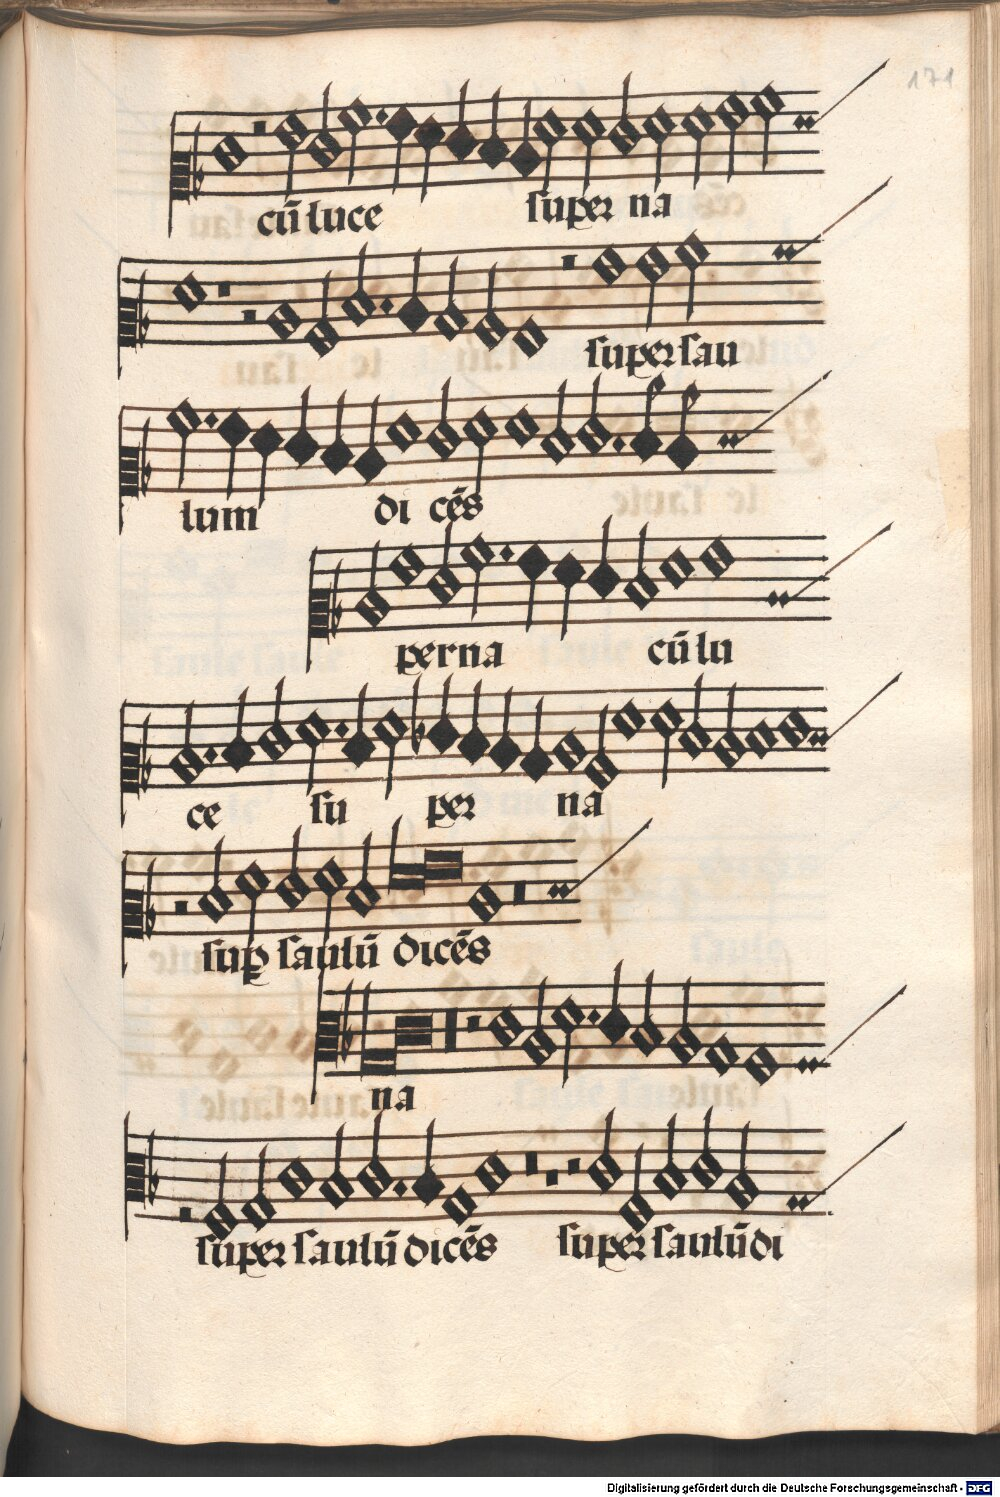 171
cū luce super na
super sau
lum di cēs
per na cū lu
ce su per na
sup̱ saulū dicēs
na
super saulū dicēs super saulū di
Digitalisierung gefördert durch die Deutsche Forschungsgemeinschaft - DFG